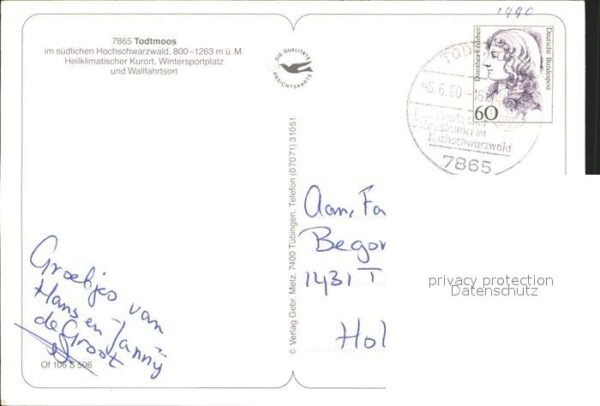 1990
7865 Todtmoos
im südlichen Hochschwarzwald, 800–1263 m ü. M.
Heilklimatischer Kurort, Wintersportplatz
und Wallfahrtsort
DIE QUALITÄTS
ANSICHTSKARTE
Dorothea Erxleben
Deutsche Bundespost
60
TOD
-6.6.90-16
im
Hochschwarzwald
7865
© Verlag Gebr. Metz, 7400 Tübingen, Telefon (07071) 31051
Aan, Fa
Begon
1431 T
Hol
privacy protection
Datenschutz
Groetjes van
Hans en Janny
de Groot
Of 106 S 506